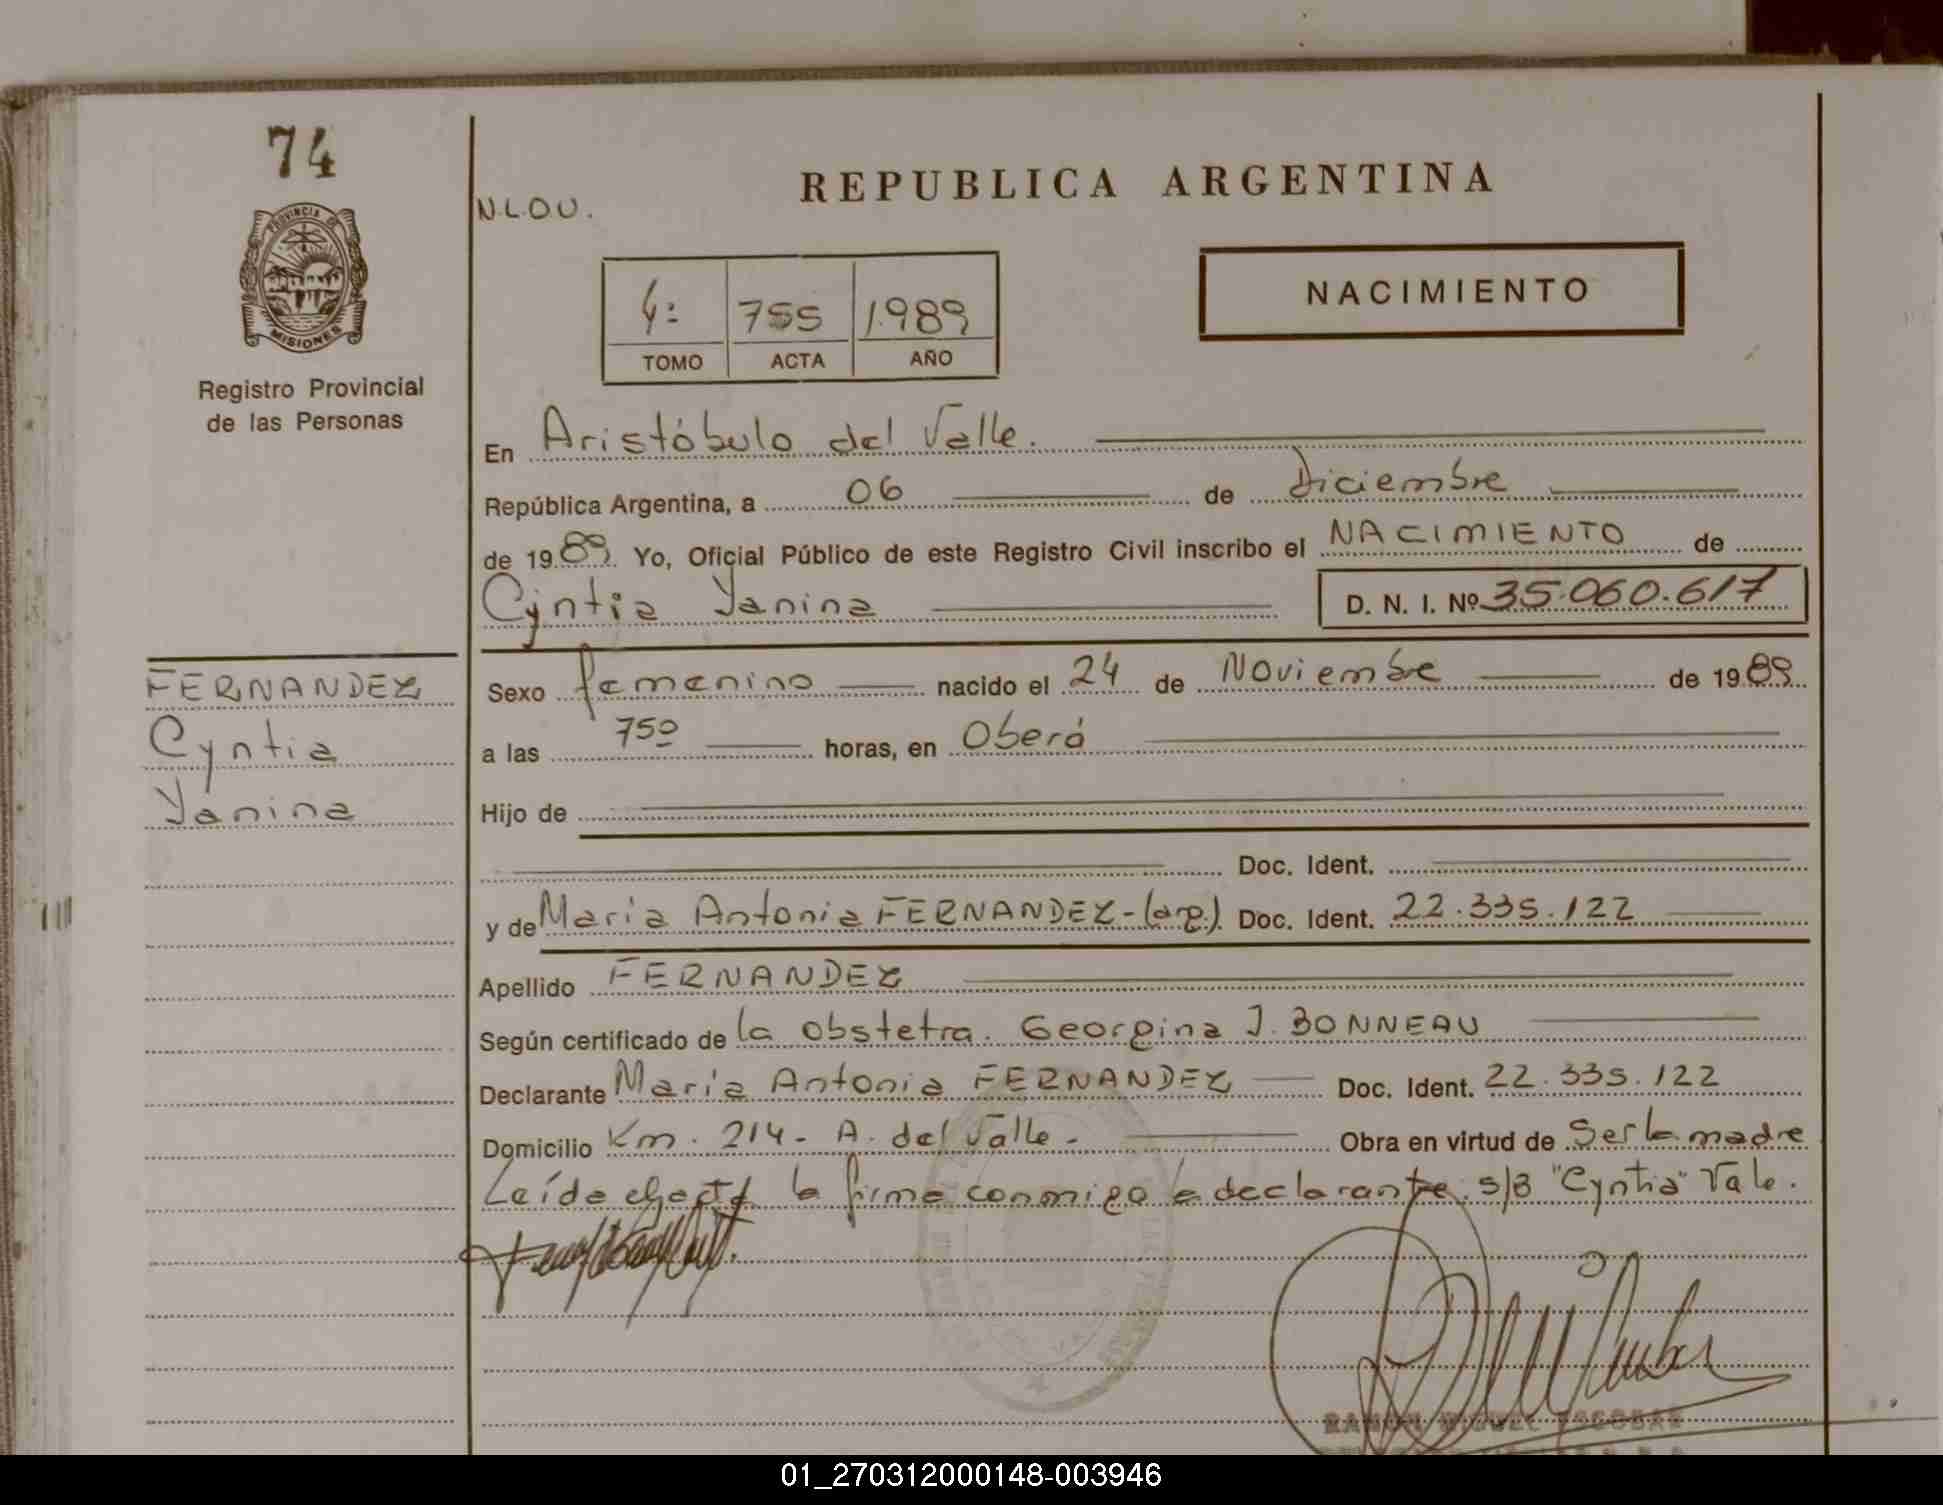 74
PROVINCIA DE
MISIONES
Registro Provincial
de las Personas
N.L.O.U.
REPUBLICA ARGENTINA
4º 755 1.989
TOMO ACTA AÑO
NACIMIENTO
En Aristóbulo del Valle.
República Argentina, a 06 de Diciembre
de 19 89. Yo, Oficial Público de este Registro Civil inscribo el NACIMIENTO de
Cyntia Yanina D. N. I. Nº 35.060.617
FERNANDEZ
Cyntia
Yanina
Sexo femenino nacido el 24 de Noviembre de 19 89
a las 7⁵⁰ horas, en Oberá
Hijo de
Doc. Ident.
y de María Antonia FERNANDEZ-(arg.) Doc. Ident. 22.335.122
Apellido FERNANDEZ
Según certificado de la obstetra. Georgina J. BONNEAU
Declarante María Antonia FERNANDEZ Doc. Ident. 22.335.122
Domicilio Km. 214- A. del Valle- Obra en virtud de Ser la madre
Leída el acta la firma conmigo la declarante. s/B "Cyntia" Vale.
RAMON MIGUEL ESCOBAR
01_270312000148-003946